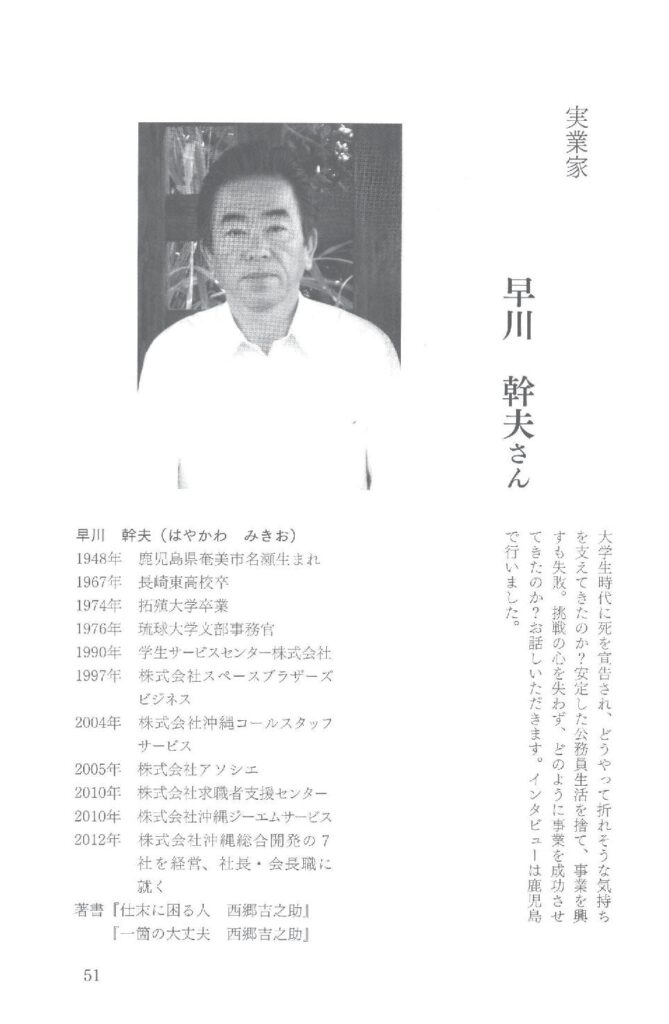 実業家
早川　幹夫さん
大学生時代に死を宣告され、どうやって折れそうな気持ち
を支えてきたのか？安定した公務員生活を捨て、事業を興
すも失敗。挑戦の心を失わず、どのように事業を成功させ
てきたのか？お話しいただきます。インタビューは鹿児島
で行いました。
早川　幹夫（はやかわ　みきお）
1948年　鹿児島県奄美市名瀬生まれ
1967年　長崎東高校卒
1974年　拓殖大学卒業
1976年　琉球大学文部事務官
1990年　学生サービスセンター株式会社
1997年　株式会社スペースブラザーズ
ビジネス
2004年　株式会社沖縄コールスタッフ
サービス
2005年　株式会社アソシエ
2010年　株式会社求職者支援センター
2010年　株式会社沖縄ジーエムサービス
2012年　株式会社沖縄総合開発の7
社を経営、社長・会長職に
就く
著書『仕末に困る人　西郷吉之助』
『一箇の大丈夫　西郷吉之助』
51